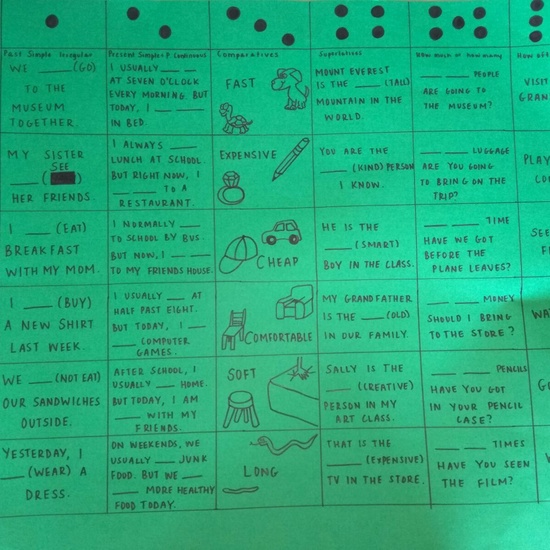 Past Simple Irregular
Present Simple + P. Continuous
Comparatives
Superlatives
How much or how many
How
WE ____ (GO)
TO THE
MUSEUM
TOGETHER.
I USUALLY ___ __
AT SEVEN O'CLOCK
EVERY MORNING. BUT
TODAY, I ___ ____
IN BED.
FAST
MOUNT EVEREST
IS THE ____ (TALL)
MOUNTAIN IN THE
WORLD.
____ ____ PEOPLE
ARE GOING TO
THE MUSEUM?
VISIT
GRAN
MY SISTER
SEE
____ ( )
HER FRIENDS.
I ALWAYS ____
LUNCH AT SCHOOL.
BUT RIGHT NOW, I
___ ___ TO A
RESTAURANT.
EXPENSIVE
YOU ARE THE
____ (KIND) PERSON
I KNOW.
____ ____ LUGGAGE
ARE YOU GOING
TO BRING ON THE
TRIP?
PLAY
CO
I ____ (EAT)
BREAKFAST
WITH MY MOM.
I NORMALLY ___
TO SCHOOL BY BUS.
BUT NOW, I ___ ___
TO MY FRIENDS HOUSE.
CHEAP
HE IS THE
____ (SMART)
BOY IN THE CLASS.
____ ____ TIME
HAVE WE GOT
BEFORE THE
PLANE LEAVES?
SEE
I ____ (BUY)
A NEW SHIRT
LAST WEEK.
I USUALLY ___ AT
HALF PAST EIGHT.
BUT TODAY, I ___
____ COMPUTER
GAMES.
COMFORTABLE
MY GRANDFATHER
IS THE ____ (OLD)
IN OUR FAMILY.
____ ____ MONEY
SHOULD I BRING
TO THE STORE?
WE ____ (NOT EAT)
OUR SANDWICHES
OUTSIDE.
AFTER SCHOOL, I
USUALLY ___ HOME.
BUT TODAY, I AM
____ WITH MY
FRIENDS.
SOFT
SALLY IS THE
____ (CREATIVE)
PERSON IN MY
ART CLASS.
____ ____ PENCILS
HAVE YOU GOT
IN YOUR PENCIL
CASE?
YESTERDAY, I
____ (WEAR) A
DRESS.
ON WEEKENDS, WE
USUALLY ___ JUNK
FOOD. BUT WE ___
____ MORE HEALTHY
FOOD TODAY.
LONG
THAT IS THE
____ (EXPENSIVE)
TV IN THE STORE.
____ ____ TIMES
HAVE YOU SEEN
THE FILM?